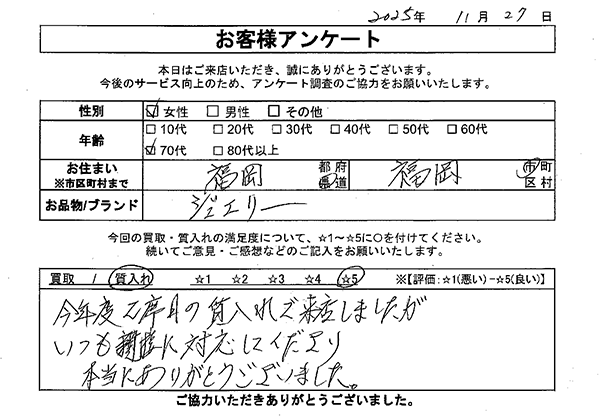 2025年 11月 27日
お客様アンケート
本日はご来店いただき、誠にありがとうございます。
今後のサービス向上のため、アンケート調査のご協力をお願いいたします。
性別 ☑女性 □男性 □その他
年齢 □10代 □20代 □30代 □40代 □50代 □60代
☑70代 □80代以上
お住まい ※市区町村まで 福岡 都府県道 福岡 市町区村
お品物/ブランド ジュエリー
今回の買取・質入れの満足度について、☆1～☆5に○を付けてください。
続いてご意見・ご感想などのご記入をお願いします。
買取 / 質入れ ☆1 ☆2 ☆3 ☆4 ☆5 ※【評価:☆1(悪い)-☆5(良い)】
今年度2度目の質入れで来店しましたが
いつも に対応してくださり
本当にありがとうございました。
ご協力いただきありがとうございました。